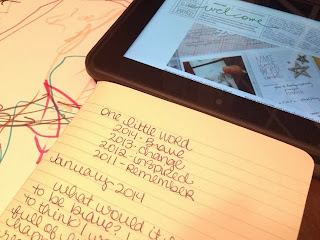 welcome
One little word
2014 - Brave
2013 - change
2012 - inspired
2011 - Remember
January 2014
to what would it
to be brave? I
to think I
full of